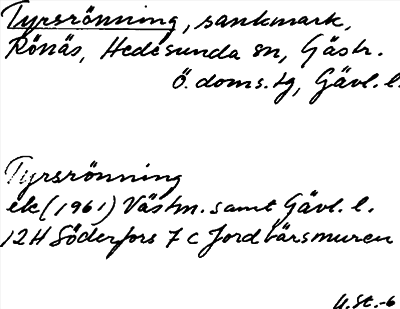 Tyrsrönning, sankmark,
Rönäs, Hedesunda sn, Gästr.
Ö. doms. tg, Gävl. l.
Tyrsrönning
ek (1961) Västm. samt Gävl. l.
12H Söderfors 7 c Jordbärsmuren
U.St.-6